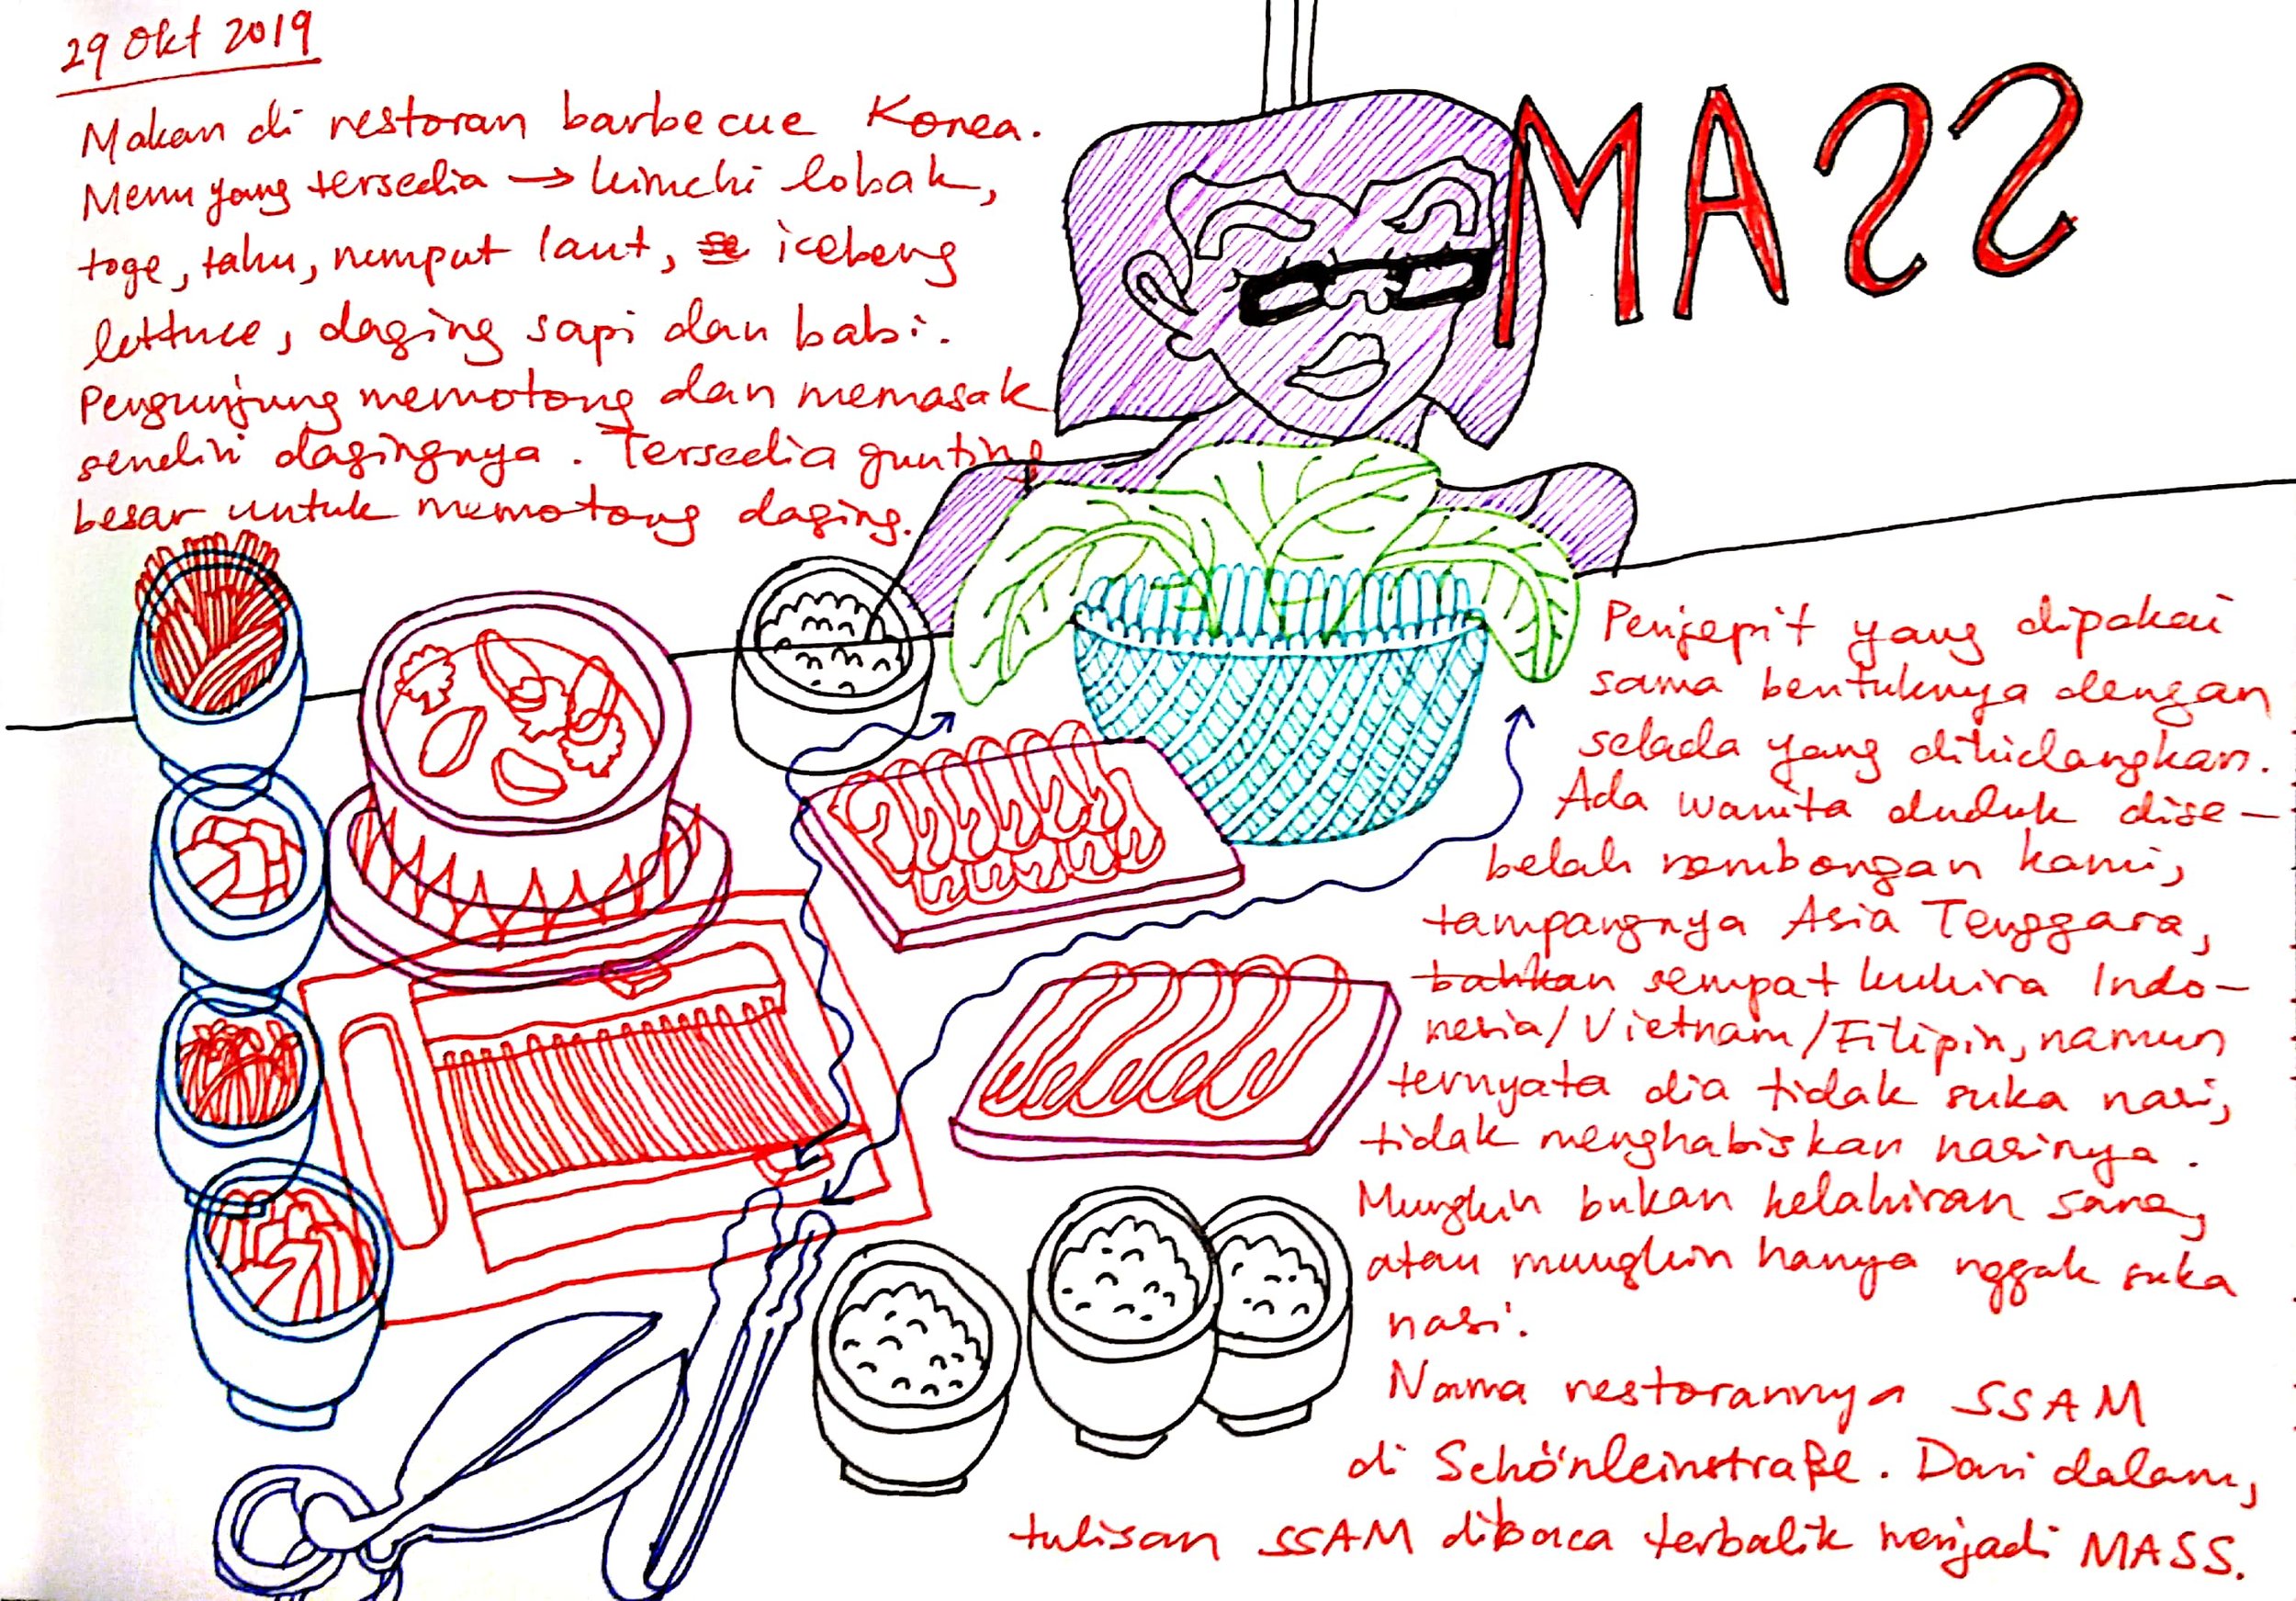 29 Okt 2019
Makan di restoran barbecue Korea.
Menu yang tersedia → kimchi lobak,
toge, tahu, rumput laut, iceberg
lettuce, daging sapi dan babi.
Pengunjung memotong dan memasak
sendiri dagingnya. Tersedia gunting
besar untuk memotong daging.
MASS
Penjepit yang dipakai
sama bentuknya dengan
selada yang dihidangkan.
Ada wanita duduk dise-
belah rombongan kami,
tampangnya Asia Tenggara,
bahkan sempat kukira Indo-
nesia/Vietnam/Filipin, namun
ternyata dia tidak suka nasi,
tidak menghabiskan nasinya.
Mungkin bukan kelahiran sana,
atau mungkin hanya nggak suka
nasi.
Nama restorannya SSAM
di Schönleinstraße. Dari dalam,
tulisan SSAM dibaca terbalik menjadi MASS.